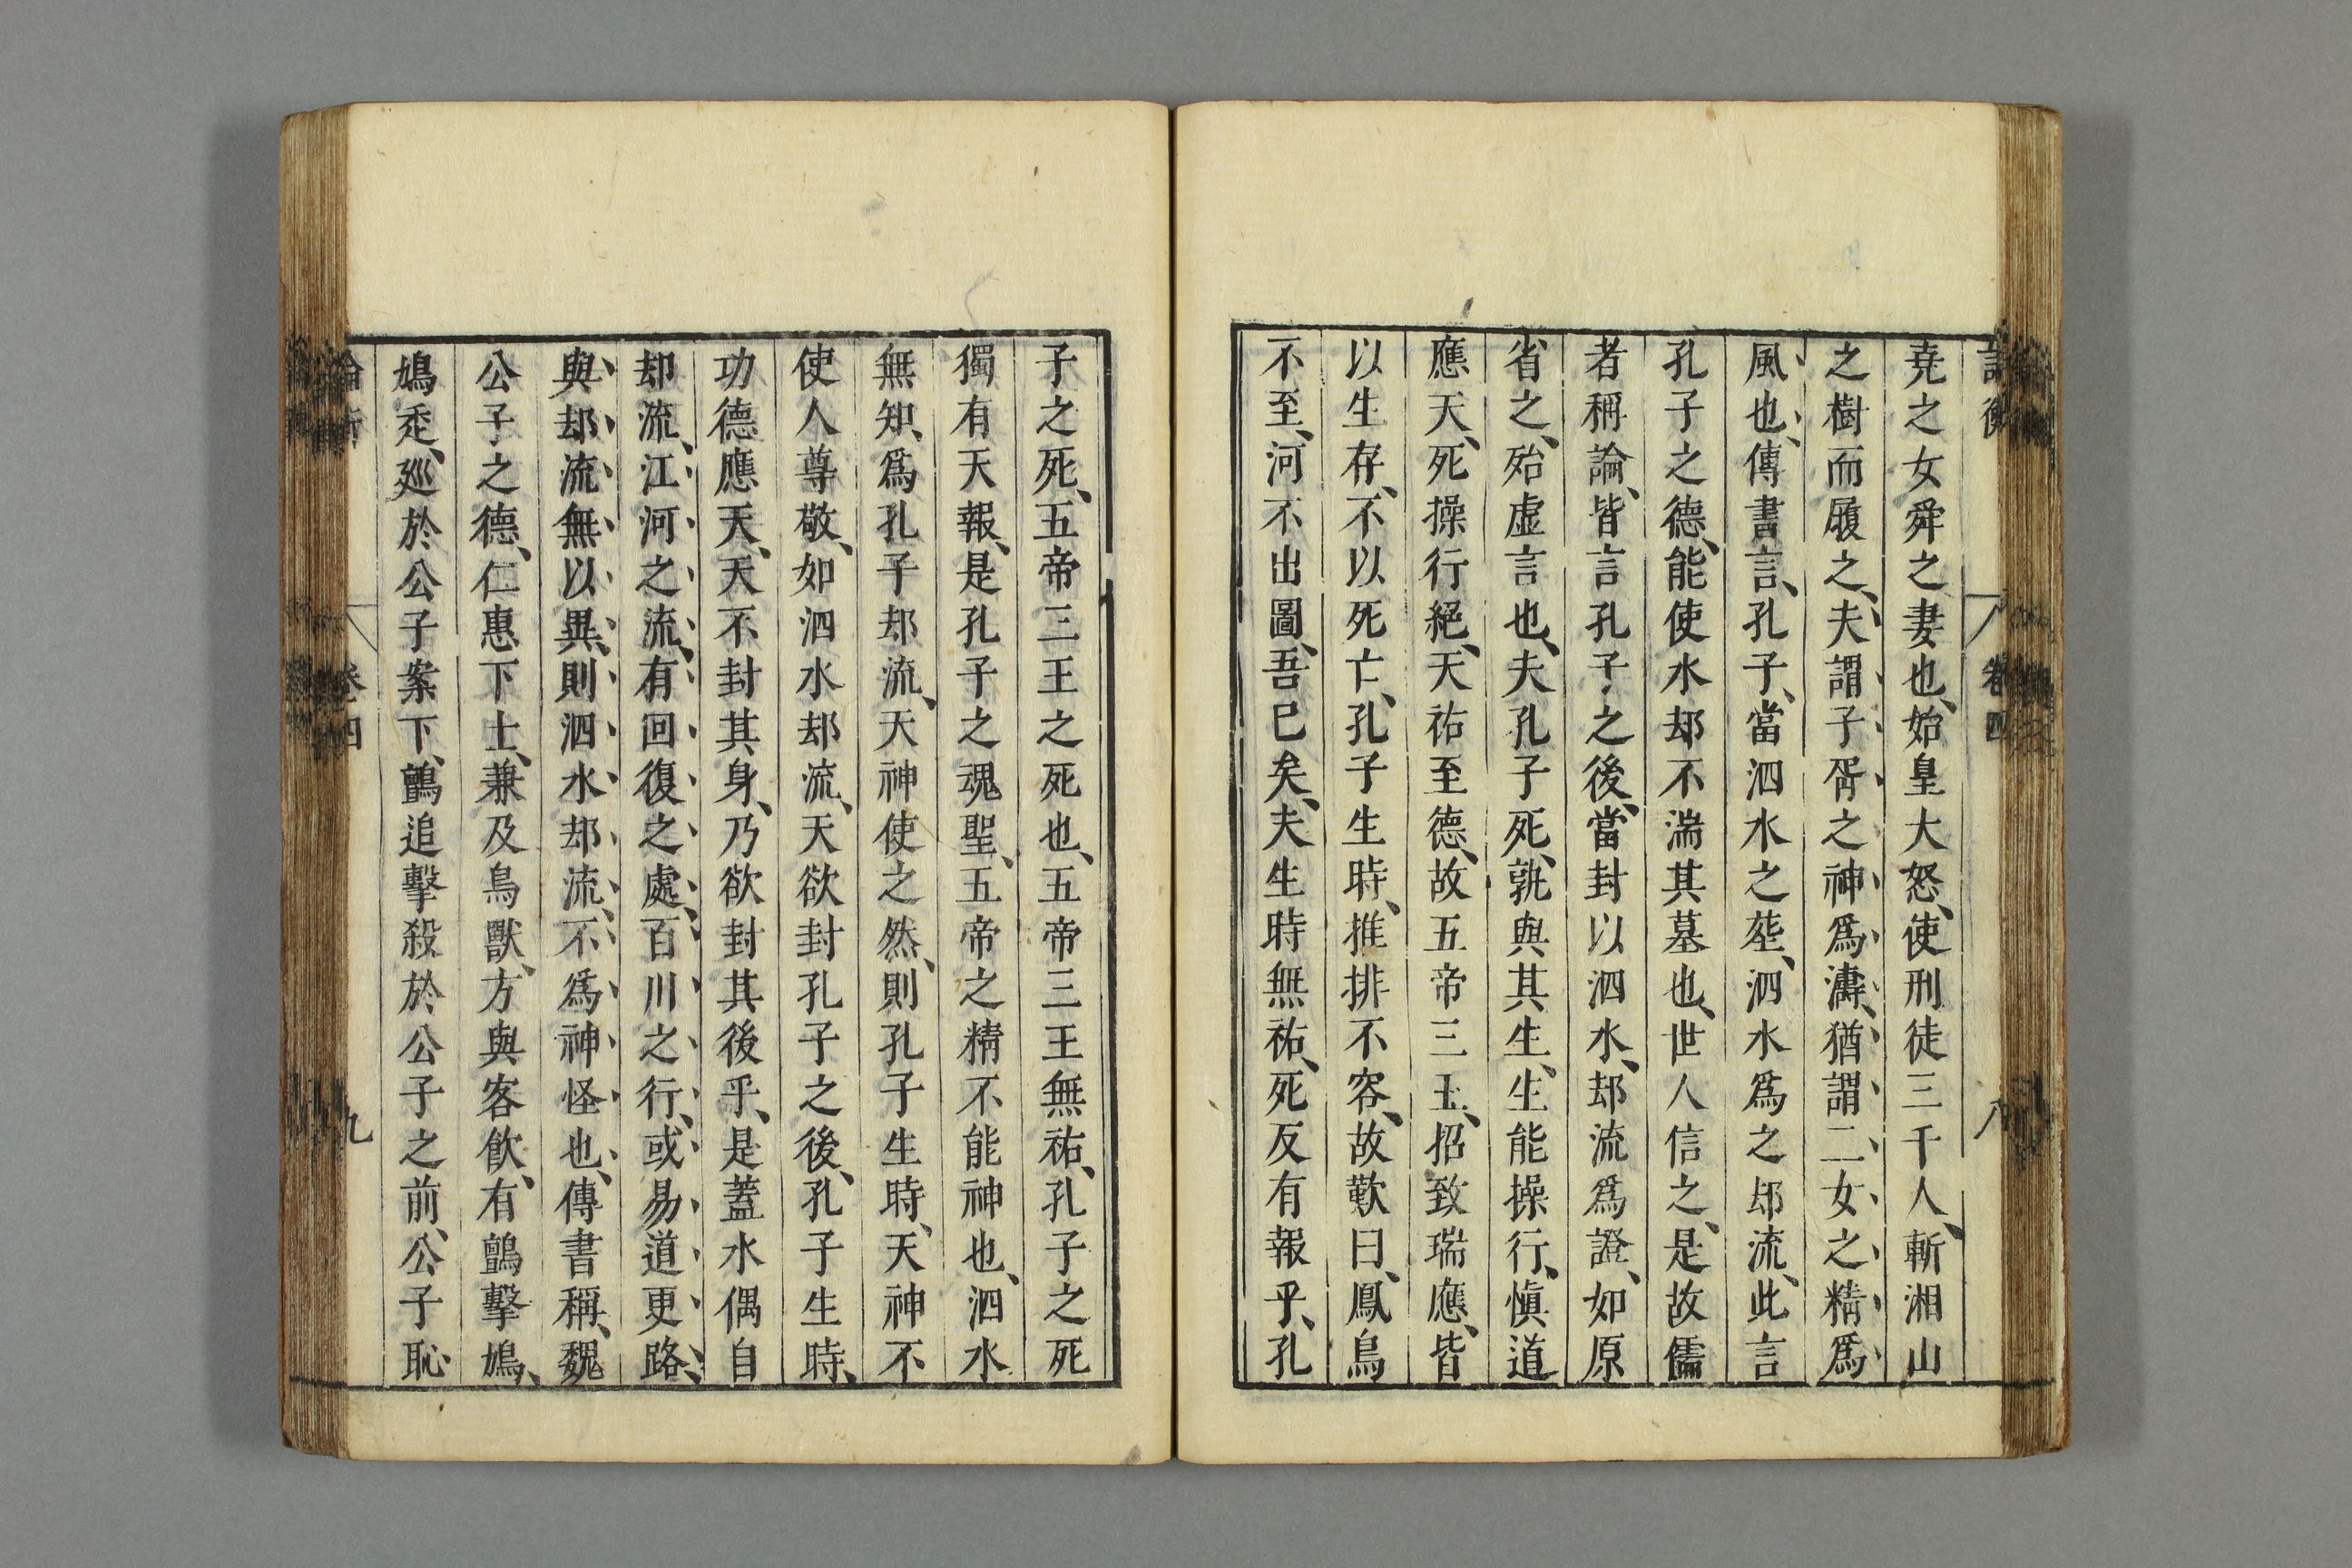 論衡 卷四 八
堯之女舜之妻也、始皇大怒、使刑徒三千人、斬湘山
之樹而履之、夫謂子胥之神爲濤、猶謂二女之精爲
風也、傳書言、孔子、當泗水之塟、泗水爲之却流、此言
孔子之德、能使水却不湍其墓也、世人信之、是故儒
者稱論、皆言孔子之後、當封以泗水、却流爲證、如原
省之、殆虛言也、夫孔子死、孰與其生、生能操行、愼道
應天、死操行絕、天祐至德、故五帝三王、招致瑞應、皆
以生存、不以死亡、孔子生時、推排不容、故歎曰、鳳鳥
不至、河不出圖、吾已矣、夫生時無祐、死反有報乎、孔
子之死、五帝三王之死也、五帝三王無祐、孔子之死
獨有天報、是孔子之魂聖、五帝之精不能神也、泗水
無知、爲孔子却流、天神使之然、則孔子生時、天神不
使人尊敬、如泗水却流、天欲封孔子之後、孔子生時、
功德應天、天不封其身、乃欲封其後乎、是蓋水偶自
却流、江河之流、有回復之處、百川之行、或易道更路、
與却流無以異、則泗水却流、不爲神怪也、傳書稱、魏
公子之德、仁惠下士、兼及鳥獸、方與客飮、有鸇擊鳩、
鳩走、廵於公子案下、鸇追擊殺於公子之前、公子恥
論衡 卷四 九